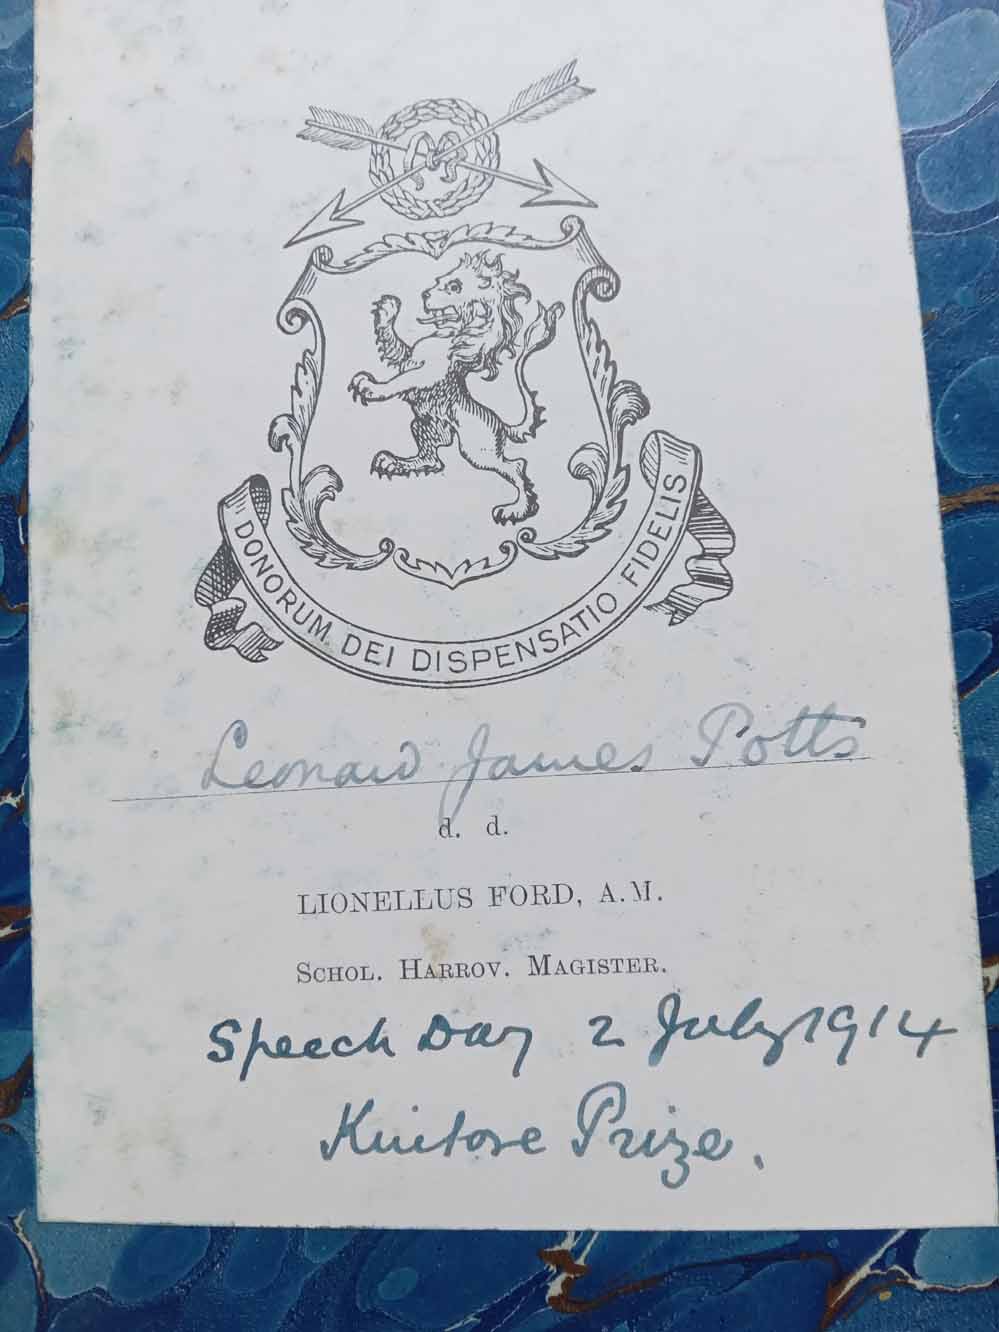 DONORUM DEI DISPENSATIO FIDELIS
Leonard James Potts
d. d.
LIONELLUS FORD, A.M.
SCHOL. HARROV. MAGISTER.
Speech Day 2 July 1914
Kintore Prize.